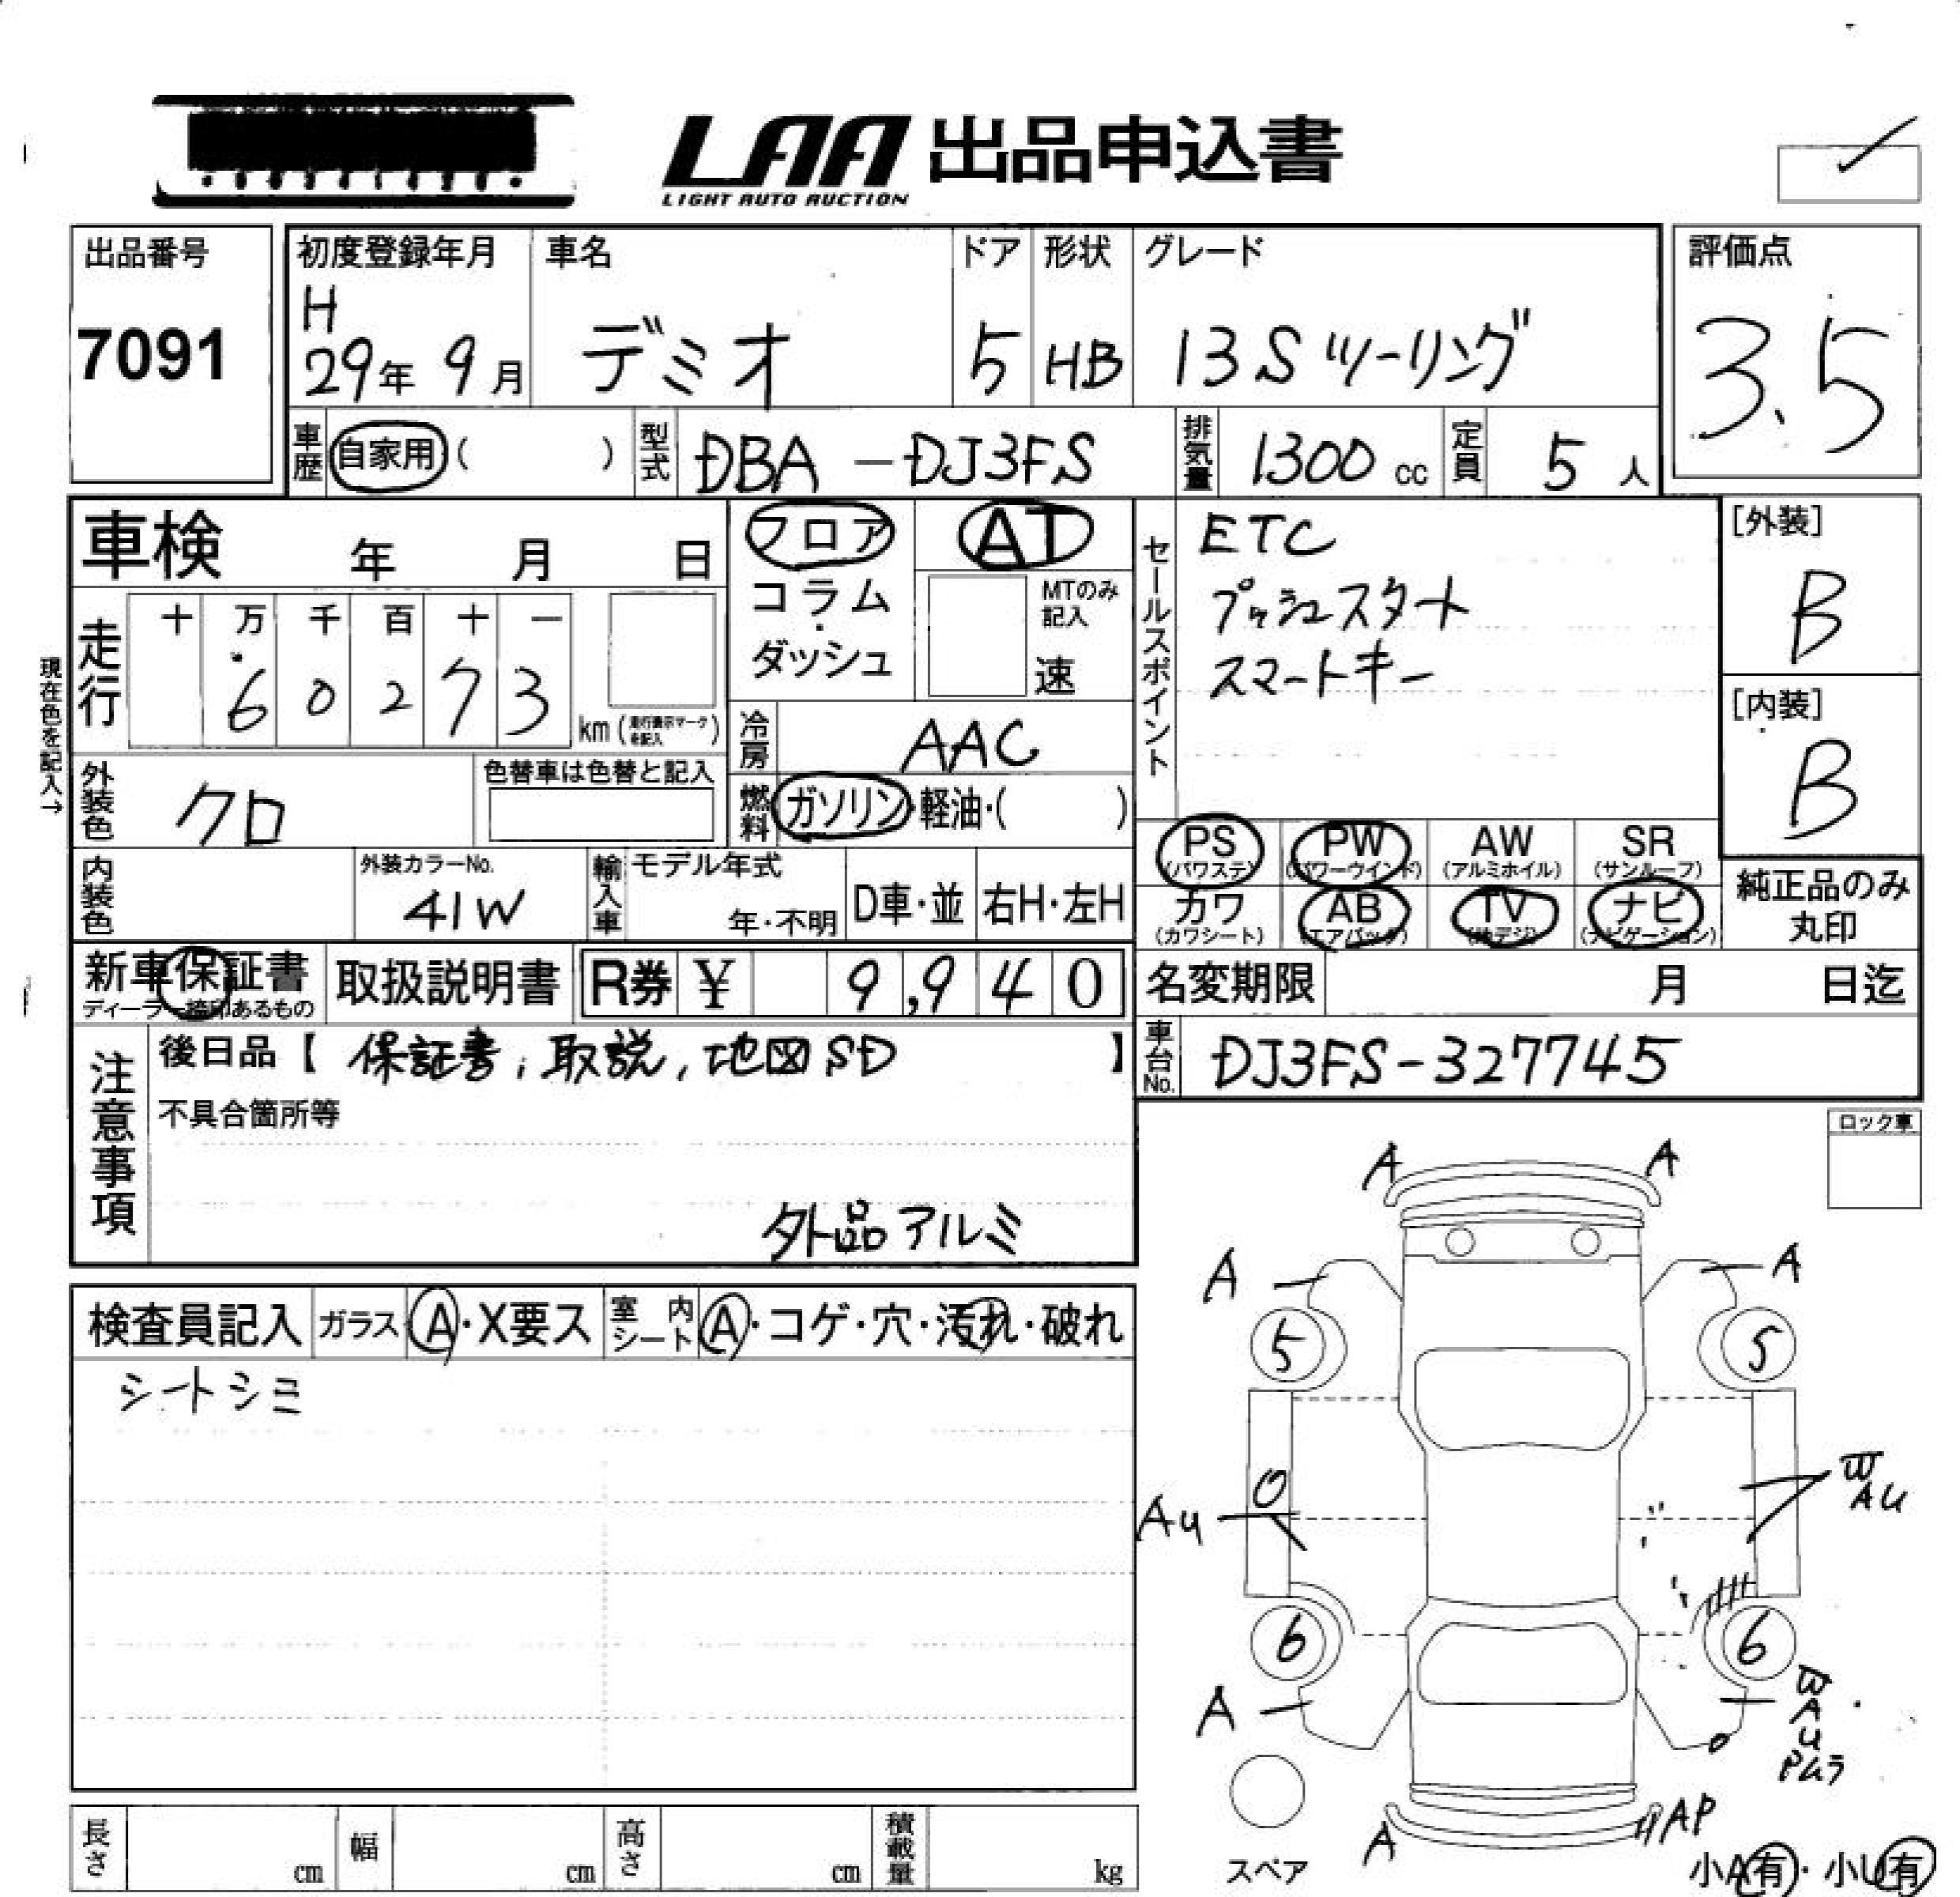 LAA 出品申込書
LIGHT AUTO AUCTION
出品番号
7091
初度登録年月
H
29年 9月
車名
デミオ
ドア
5
形状
HB
グレード
13S ツーリング
評価点
3.5
車歴 自家用 ( )
型式 DBA - DJ3FS
排気量 1300 cc
定員 5 人
車検 年 月 日
フロア
コラム
・
ダッシュ
AT
MTのみ
記入
速
セールスポイント
ETC
プッシュスタート
スマートキー
[外装]
B
[内装]
B
現在色を記入→
走行
十 万 千 百 十 一
6 0 2 7 3
km (走行表示マークを記入)
冷房 AAC
外装色 クロ
色替車は色替と記入
燃料 ガソリン・軽油・( )
PS PW AW SR
(パワステ) (パワーウインド) (アルミホイル) (サンルーフ)
カワ AB TV ナビ
(カワシート) (エアバック) (地デジ) (ナビゲーション)
純正品のみ
丸印
内装色
外装カラーNo.
41W
輸入車
モデル年式
年・不明
D車・並
右H・左H
新車保証書
ディーラー捺印あるもの
取扱説明書
R券 ¥ 9,940
名変期限 月 日迄
車台No. DJ3FS-327745
注意事項
後日品【 保証書, 取説, 地図SD 】
不具合箇所等
外品アルミ
ロック車
検査員記入 ガラス A・X要ス 室内シート A・コゲ・穴・汚れ・破れ
シートシミ
A A
A A
5 5
Au
W
AU
6 6
A
W
A
U
Pムラ
スペア
A
AP
小A有・小U有
長さ cm
幅 cm
高さ cm
積載量 kg